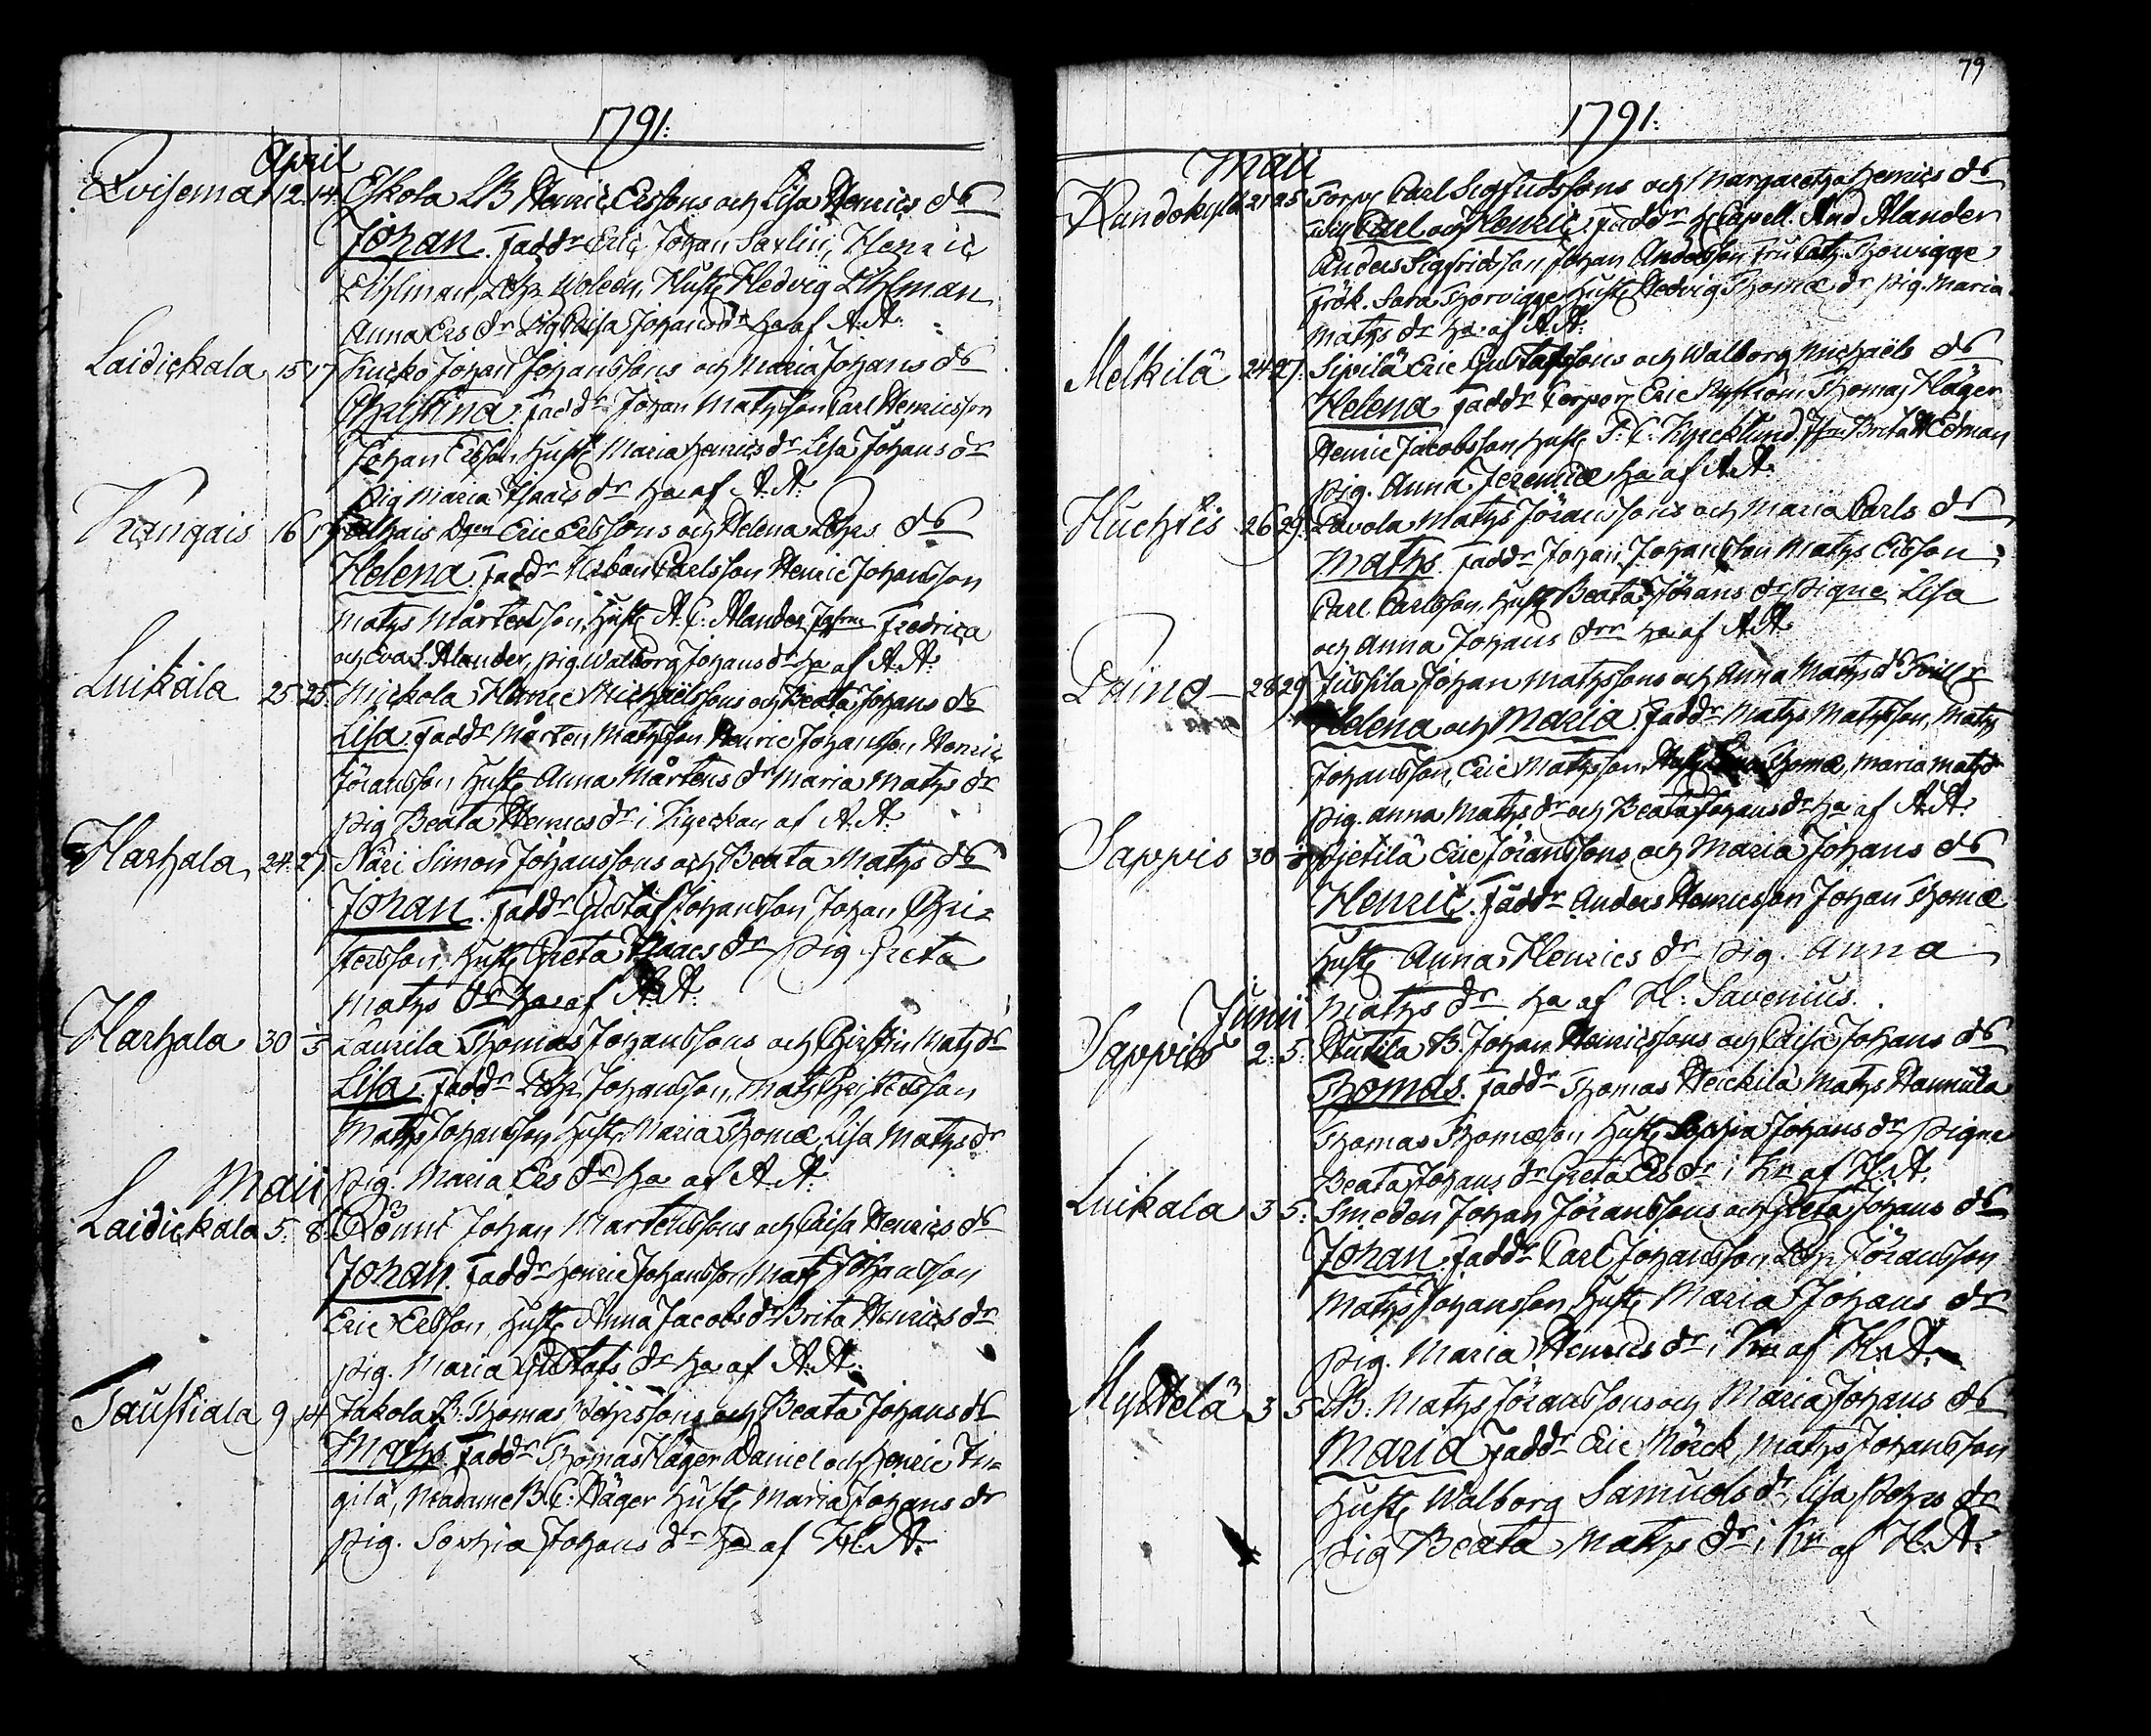 1791:
April
Lvisema 12. 14. Eskola LB Henric Erssons och Lisa Henrics dr
Johan. Faddr Eric Johan Saxlin, Henric
Lihlman, Hust Hedvig Lihlman
Anna Ers dr Pig Caisa Johans dr ha af A: A:
Laidickala 15 17 Kucko Johan Johanssons och Maria Johans dr
Christina. Faddr Johan Matsson Carl Henricsson
Johan Ersson, Hust Maria Henrics dr Lisa Johans dr
pig Maria Isaacs dr ha af A: A:
Kangais 16 17 Eric Erssons och Helena dr
Helena. Faddr Urban Carlsson Henric Johansson
Mats Mårtensson, Hust A. C: Alander Jgfrur Fredrica
och Eva S. Alander, pig. Walborg Johans dr ha af A: A:
Luikala 25 25. Mickola Henric Michaëlssons och Beata Johans dr
Lisa. Faddr Mårten Matsson Henric Johansson Henric
Jöransson, Hust Anna Mårtens dr Maria Mats dr
pig Beata Henrics dr i Kyrckan af A: A:
Harhala 24. 27. Näri Simon Johanssons och Beata Mats dr
Johan. Faddr Gustaf Johansson, Johan Chri-
stersson, Hust Greta Isaacs dr pig Greta
Mats dr ha af A: A:
Harhala 30 1/5 Laurila Thomas Johanssons och Christin Mats dr
Lisa. Faddr Johansson, Mats Christersson
Mats Johansson Hust Maria Thomæ, Lisa Mats dr
pig. Maria Ers dr ha af A: A:
Maii
Laidickala 5. 8. Rönni Johan Mårtenssons och Caisa Henrics dr
Johan. Faddr Henric Johansson, Mats Johansson
Eric Ersson, Hust Anna Jacobs dr Brita Henrics dr
pig. Maria Gustafs dr ha af A: A:
Taustiala 9 14 Jakola B: Thomas och Beata Johans dr
Mats. Faddr Thomas Häger Daniel och Henric Tin-
gilä, Madame B C: Häger Hust Maria Johans dr
pig. Sophia Johans dr ha af H: A:
79
1791:
Maii
Randokylä 21 25 Torp Carl Sigfridssons och Margaretha Henrics dr
Carl och Henric. Faddr H Capell. And Alander
Anders Sigfridsson Johan Andersson Fru Cath. Thorwigge
Frök. Sara Thorvigge, Hust Hedvig Thomæ dr pig. Maria
Mats dr ha af A: A:
Melkilä 24 27. Sipilä Eric Gustafssons och Walborg Michaëls dr
Helena. Faddr Corpor Eric Nyström Thomas Häger
Henric Jacobsson, Hust F: C: Kyrcklund, Jfru Brita Hedman
pig. Anna Jeremiæ ha af A: A:
Huchtis 26 29. Lavola Mats Jöranssons och Maria Carls dr
Mats. Faddr Johan Johansson Mats Ersson
Carl Carlsson, Hust Beata Jörans dr pigne Lisa
och Anna Johans drr ha af A: A:
Paino 28 29 Jussila Johan Matssons och Anna Mats d Twill
Helena och Maria. Faddr Mats Matsson, Mats
Johansson, Eric Matsson, Hust Thomæ, Maria Mats dr
pig. Anna Mats dr och Beata Johans dr ha af A: A:
Sappis 30 Pjetilä Eric Jöranssons och Maria Johans dr
Henric. Faddr Anders Henricsson Johan Thomæ
Hust Anna Henrics dr pig. Anna
Mats dr ha af H: Savenius.
Junii
Sappis 2. 5. Hutila B. Johan Henricssons och Caisa Johans dr
Thomas. Faddr Thomas Heickilä Mats Hannula
Thomas Thomæson Hust Sophia Johans dr pigne
Beata Johans dr Greta Ers dr i Kn af H: A:
Luikala 3 5. Smeden Johan Jöranssons och Greta Johans dr
Johan. Faddr Carl Johansson Jöransson
Mats Johansson, Hust Maria Johans dr
pig. Maria Henrics dr i Kn af H: A:
Myttelä 3 5 LB: Mats Jöranssons och Maria Johans dr
Maria. Faddr Eric Mörck, Mats Johansson
Hust Walborg Samuels dr, Lisa dr
pig Beata Mats dr i Kn af H: A: